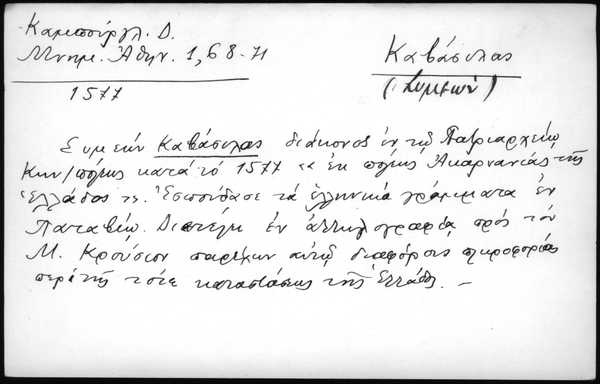 Καμπούργλ. Δ.
Μνημ. Ἀθην. 1, 68-71
1577
Καβάσυλας
(Συμεών)
Συμεών Καβάσυλας διάκονος ἐν τῷ Πατριαρχείῳ
Κων/πόλεως κατὰ τὸ 1577 « ἐκ πόλεως Ἀκαρνανίας τῆς
Ἑλλάδος ». Ἐσπούδασε τὰ ἑλληνικὰ γράμματα ἐν
Παταβίῳ. Διετέλει ἐν ἀλληλογραφίᾳ πρὸς τὸν
Μ. Κρούσιον παρέχων αὐτῷ διαφόρους πληροφορίας
περὶ τῆς τότε καταστάσεως τῆς Ἑλλάδος. —